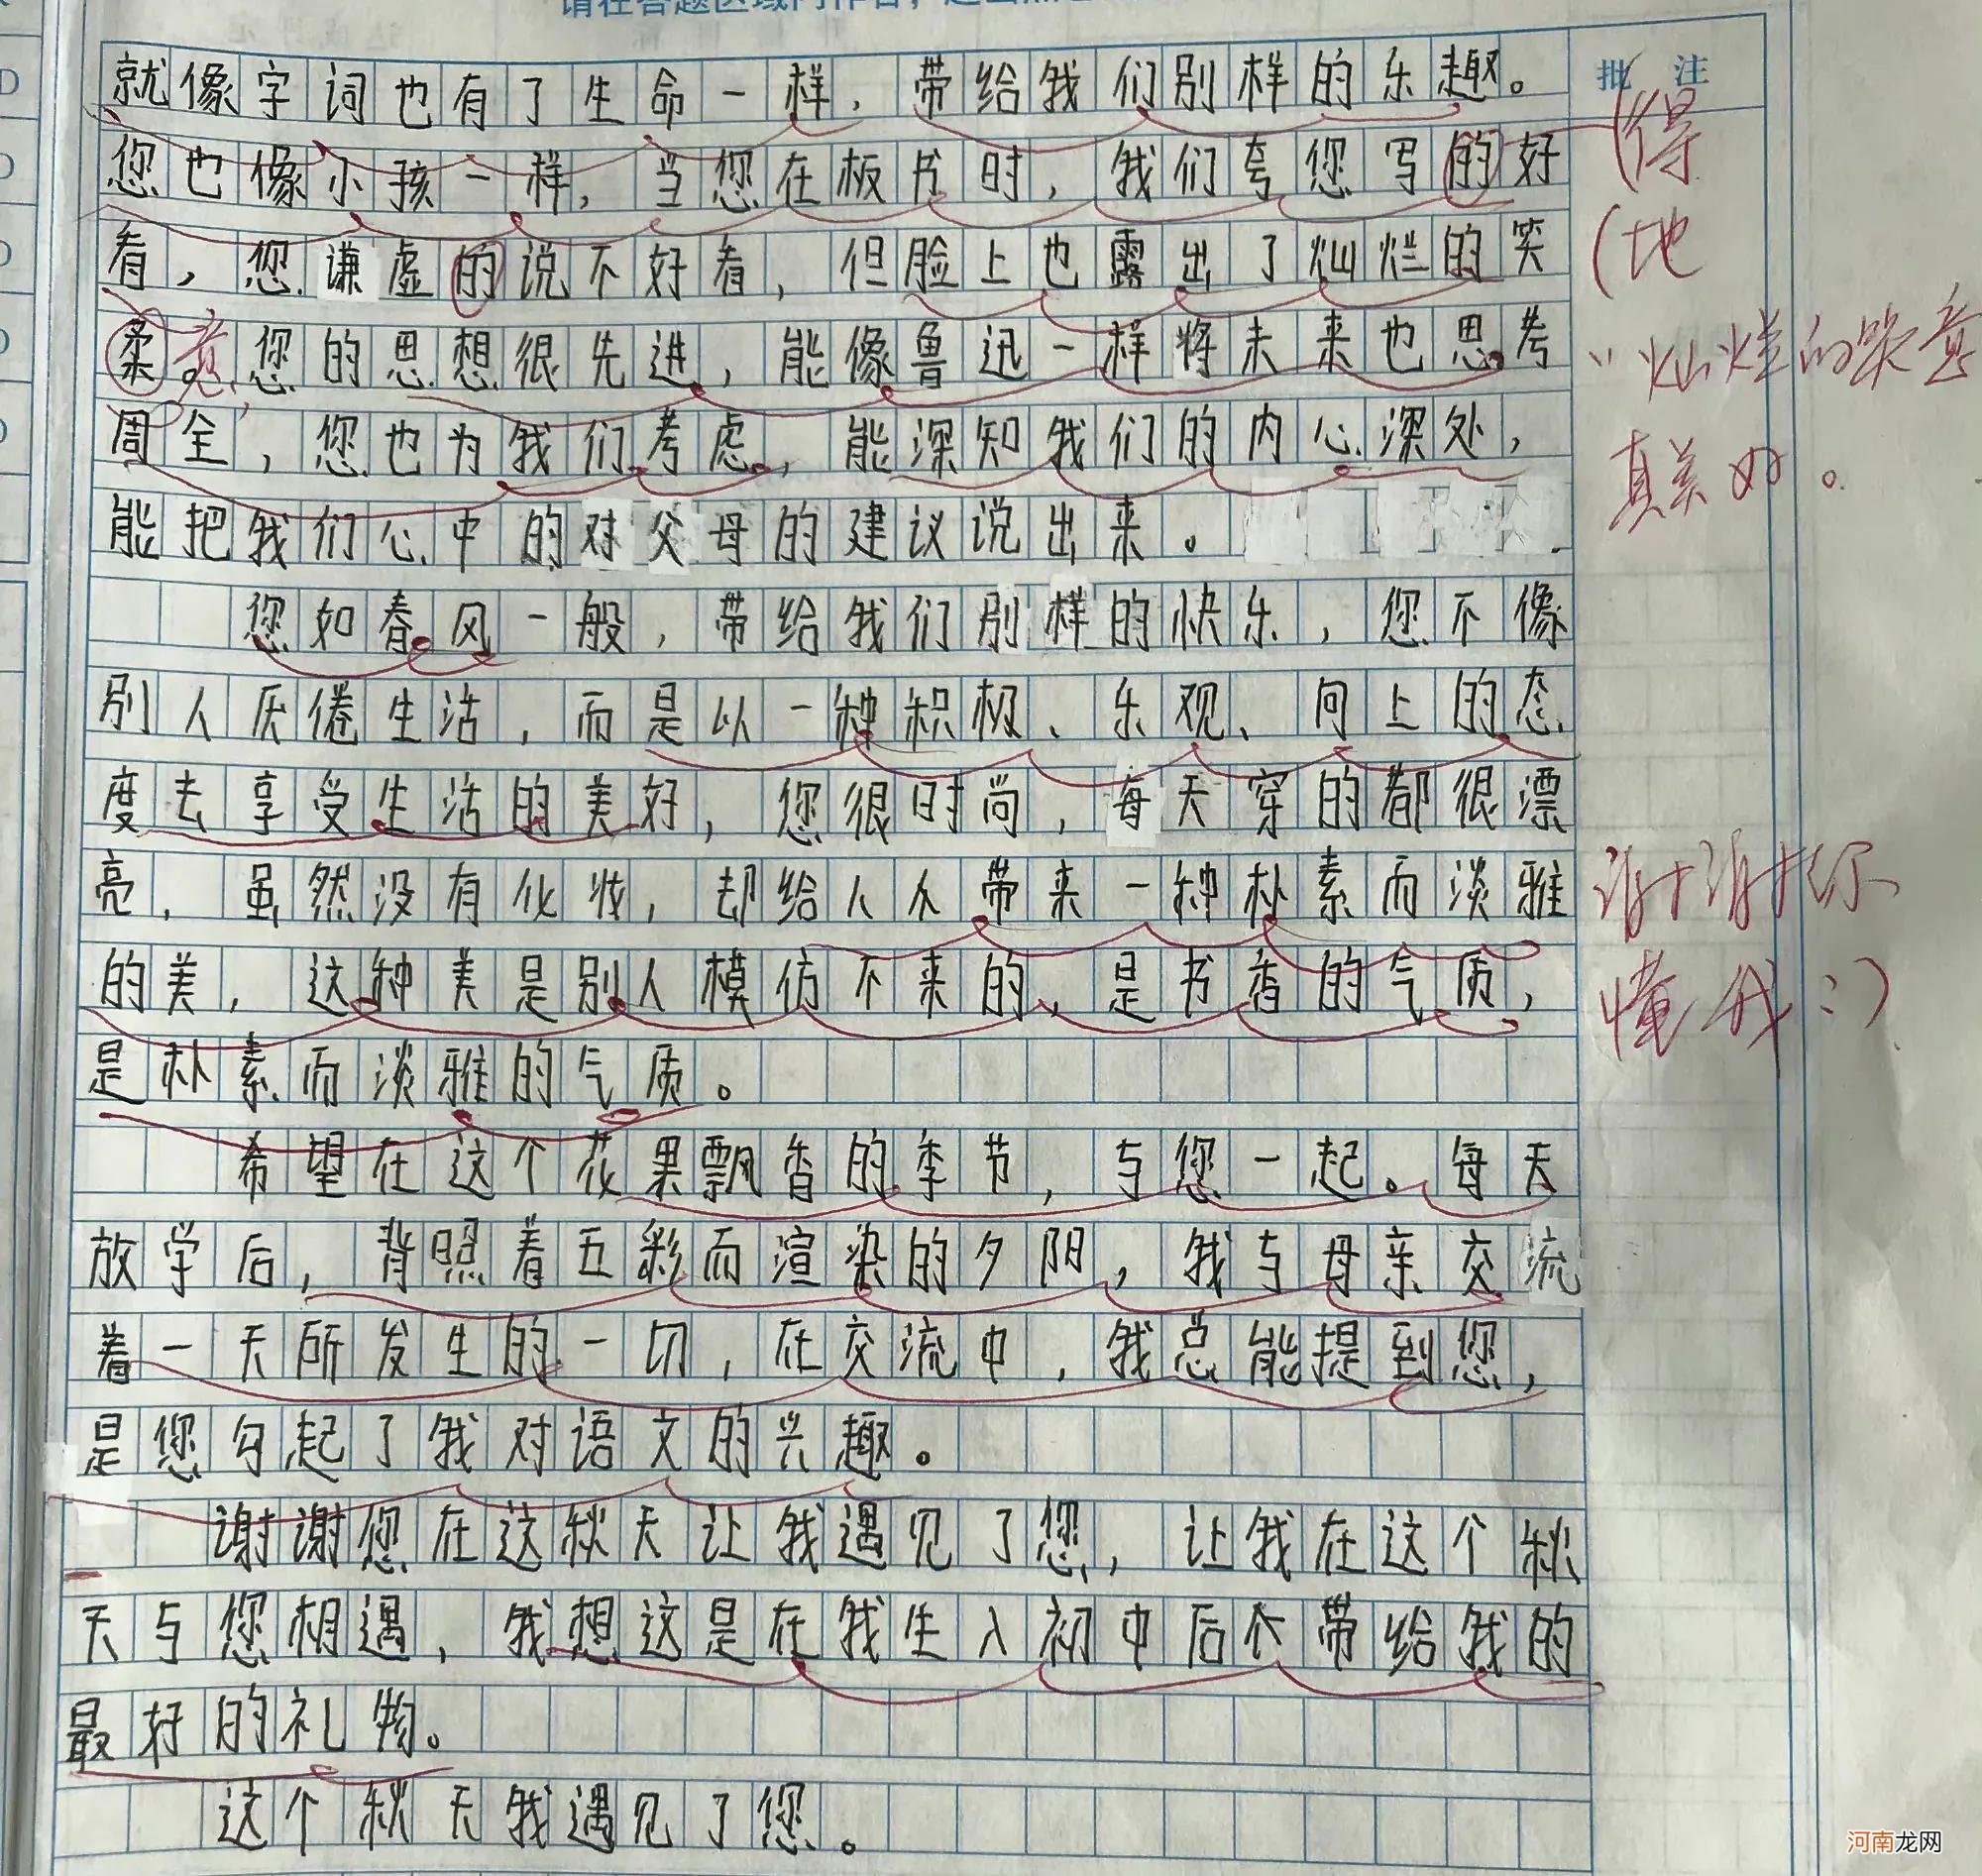 就像字词也有了生命一样，带给我们别样的乐趣。
批注
您也像小孩一样，当您在板书时，我们夸您写的好
得
看，您谦虚的说不好看，但脸上也露出了灿烂的笑
地
柔意，您的思想很先进，能像鲁迅一样将未来也思考
"灿烂的笑意
周全，您也为我们考虑，能深知我们的内心深处，
真美好。
能把我们心中的对父母的建议说出来。
您如春风一般，带给我们别样的快乐，您不像
别人厌倦生活，而是以一种积极、乐观、向上的态
度去享受生活的美好，您很时尚，每天穿的都很漂
亮，虽然没有化妆，却给人带来一种朴素而淡雅
谢谢你
的美，这种美是别人模仿不来的，是书香的气质，
懂我:)
是朴素而淡雅的气质。
希望在这个花果飘香的季节，与您一起。每天
放学后，背照着五彩而渲染的夕阳，我与母亲交流
着一天所发生的一切，在交流中，我总能提到您，
是您勾起了我对语文的兴趣。
谢谢您在这秋天让我遇见了您，让我在这个秋
天与您相遇，我想这是在我生入初中后个带给我的
最好的礼物。
这个秋天我遇见了您。
河南龙网